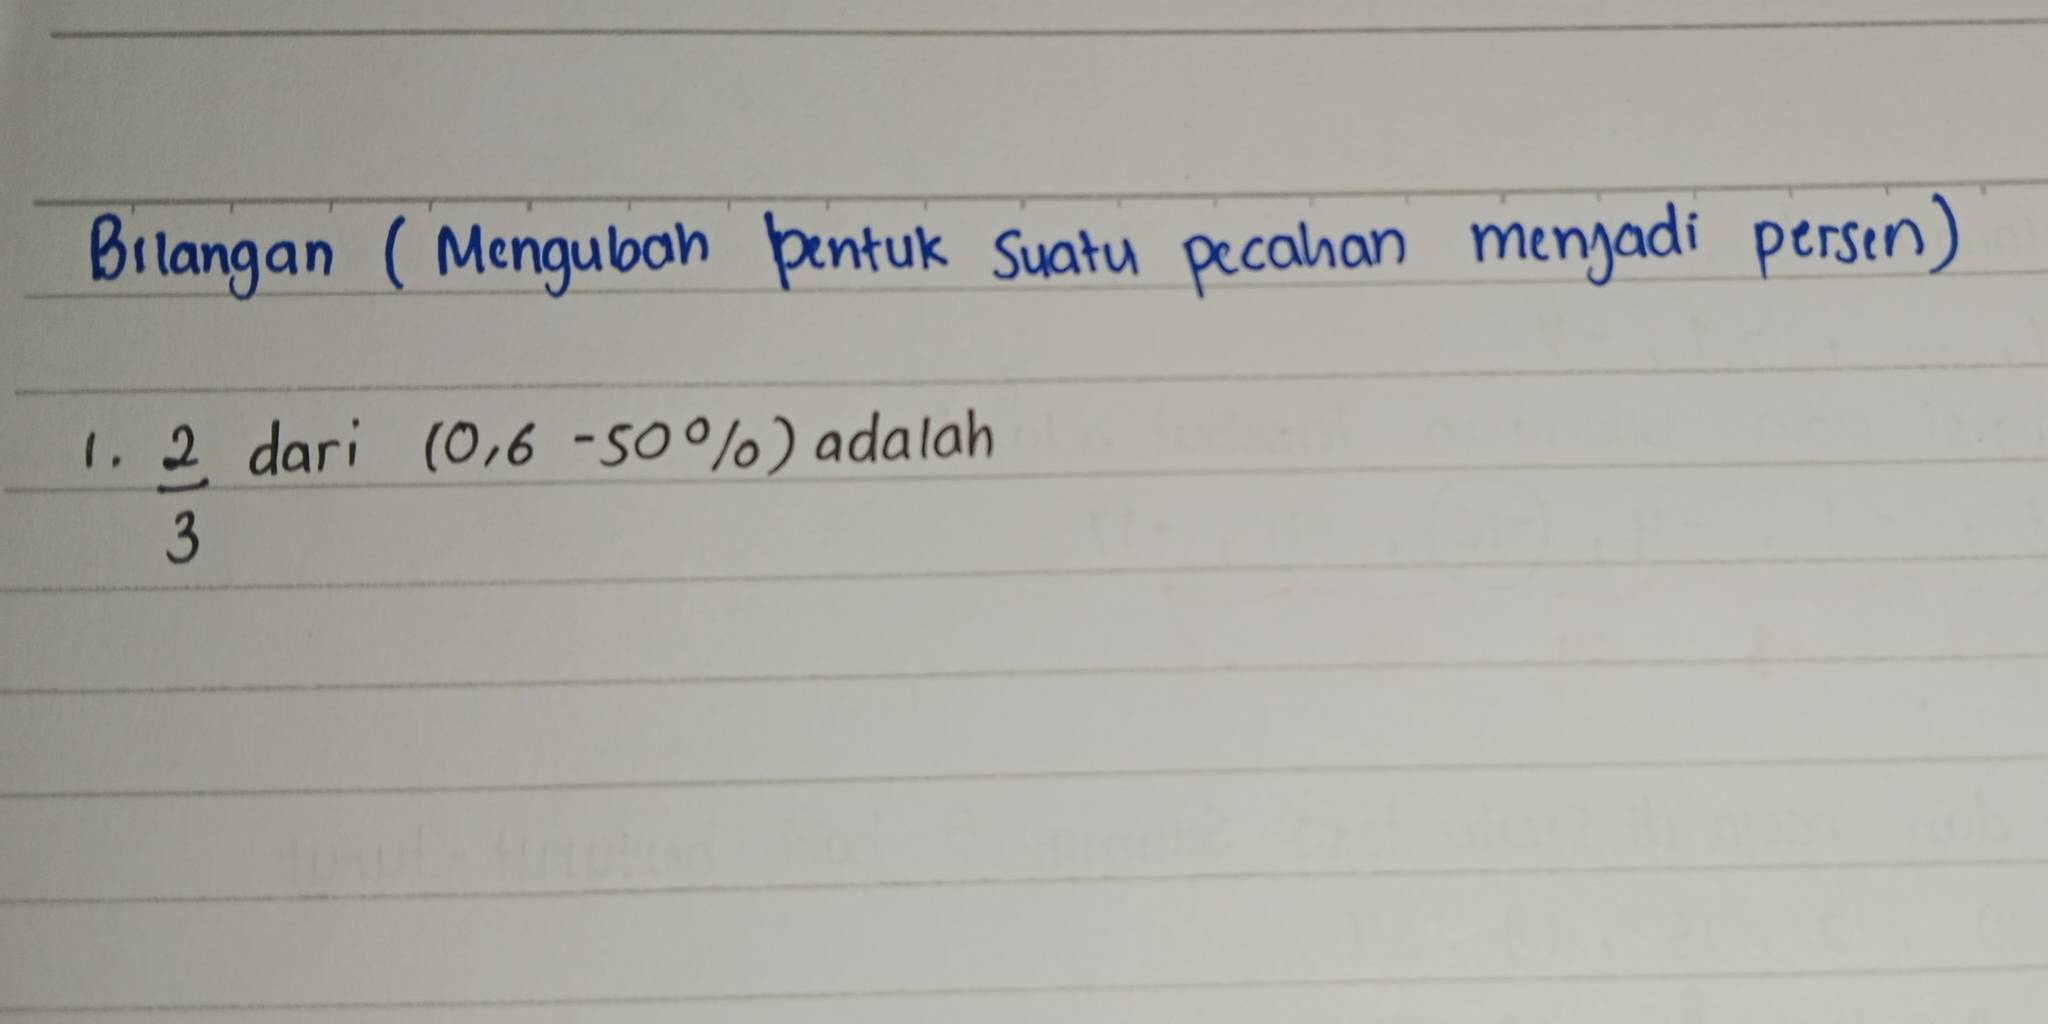 Bilangan (Mengubah bentuk suatu pecahan menjadi persen)
1. 2/3 dari (0,6 - 50%) adalah